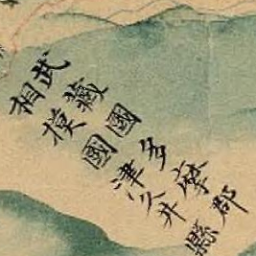 武藏國多摩郡
相模國津久井縣